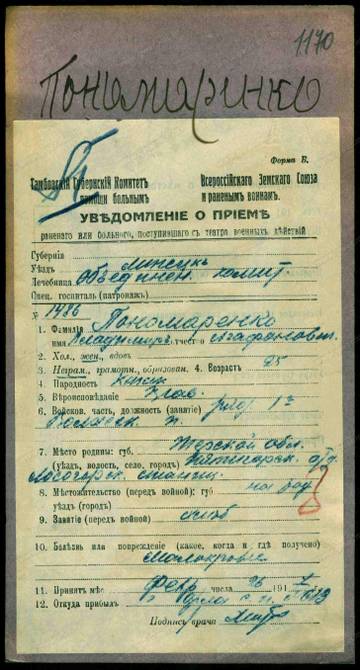 1170
Пономаринко
Форма Б.
Тамбовскій Губернскій Комитетъ
Всероссійскаго Земскаго Союза
помощи больнымъ
и раненымъ воинамъ.
УВѢДОМЛЕНІЕ О ПРІЕМѢ
раненаго или больного, поступившаго съ театра военныхъ дѣйствій
Губернія
Уѣздъ Липецкъ
Лечебница Объединен. комит.
Спец. госпиталь (патронажъ)
№ 1486
1. Фамилія Пономаренко
имя Владиміръ отчество Агафонович
2. Хол., жен., вдовъ
3. Неграм., грамотн., образован. 4. Возрастъ 25
4. Народность
5. Вѣроисповѣданіе Прав.
6. Войсков. часть, должность (занятіе) ряд.
п.
7. Мѣсто родины: губ. Терской обл.
(уѣздъ, волость, село, городъ) Пятигорск.
станиц.
8. Мѣстожительство (передъ войной): губ
уѣздъ (городъ)
9. Занятіе (передъ войной)
10. Болѣзнь или поврежденіе (какое, когда и гдѣ получено)
Малокровіе
11. Принятъ мѣс. Февр числа 26 191
12. Откуда прибылъ
Подпись врача